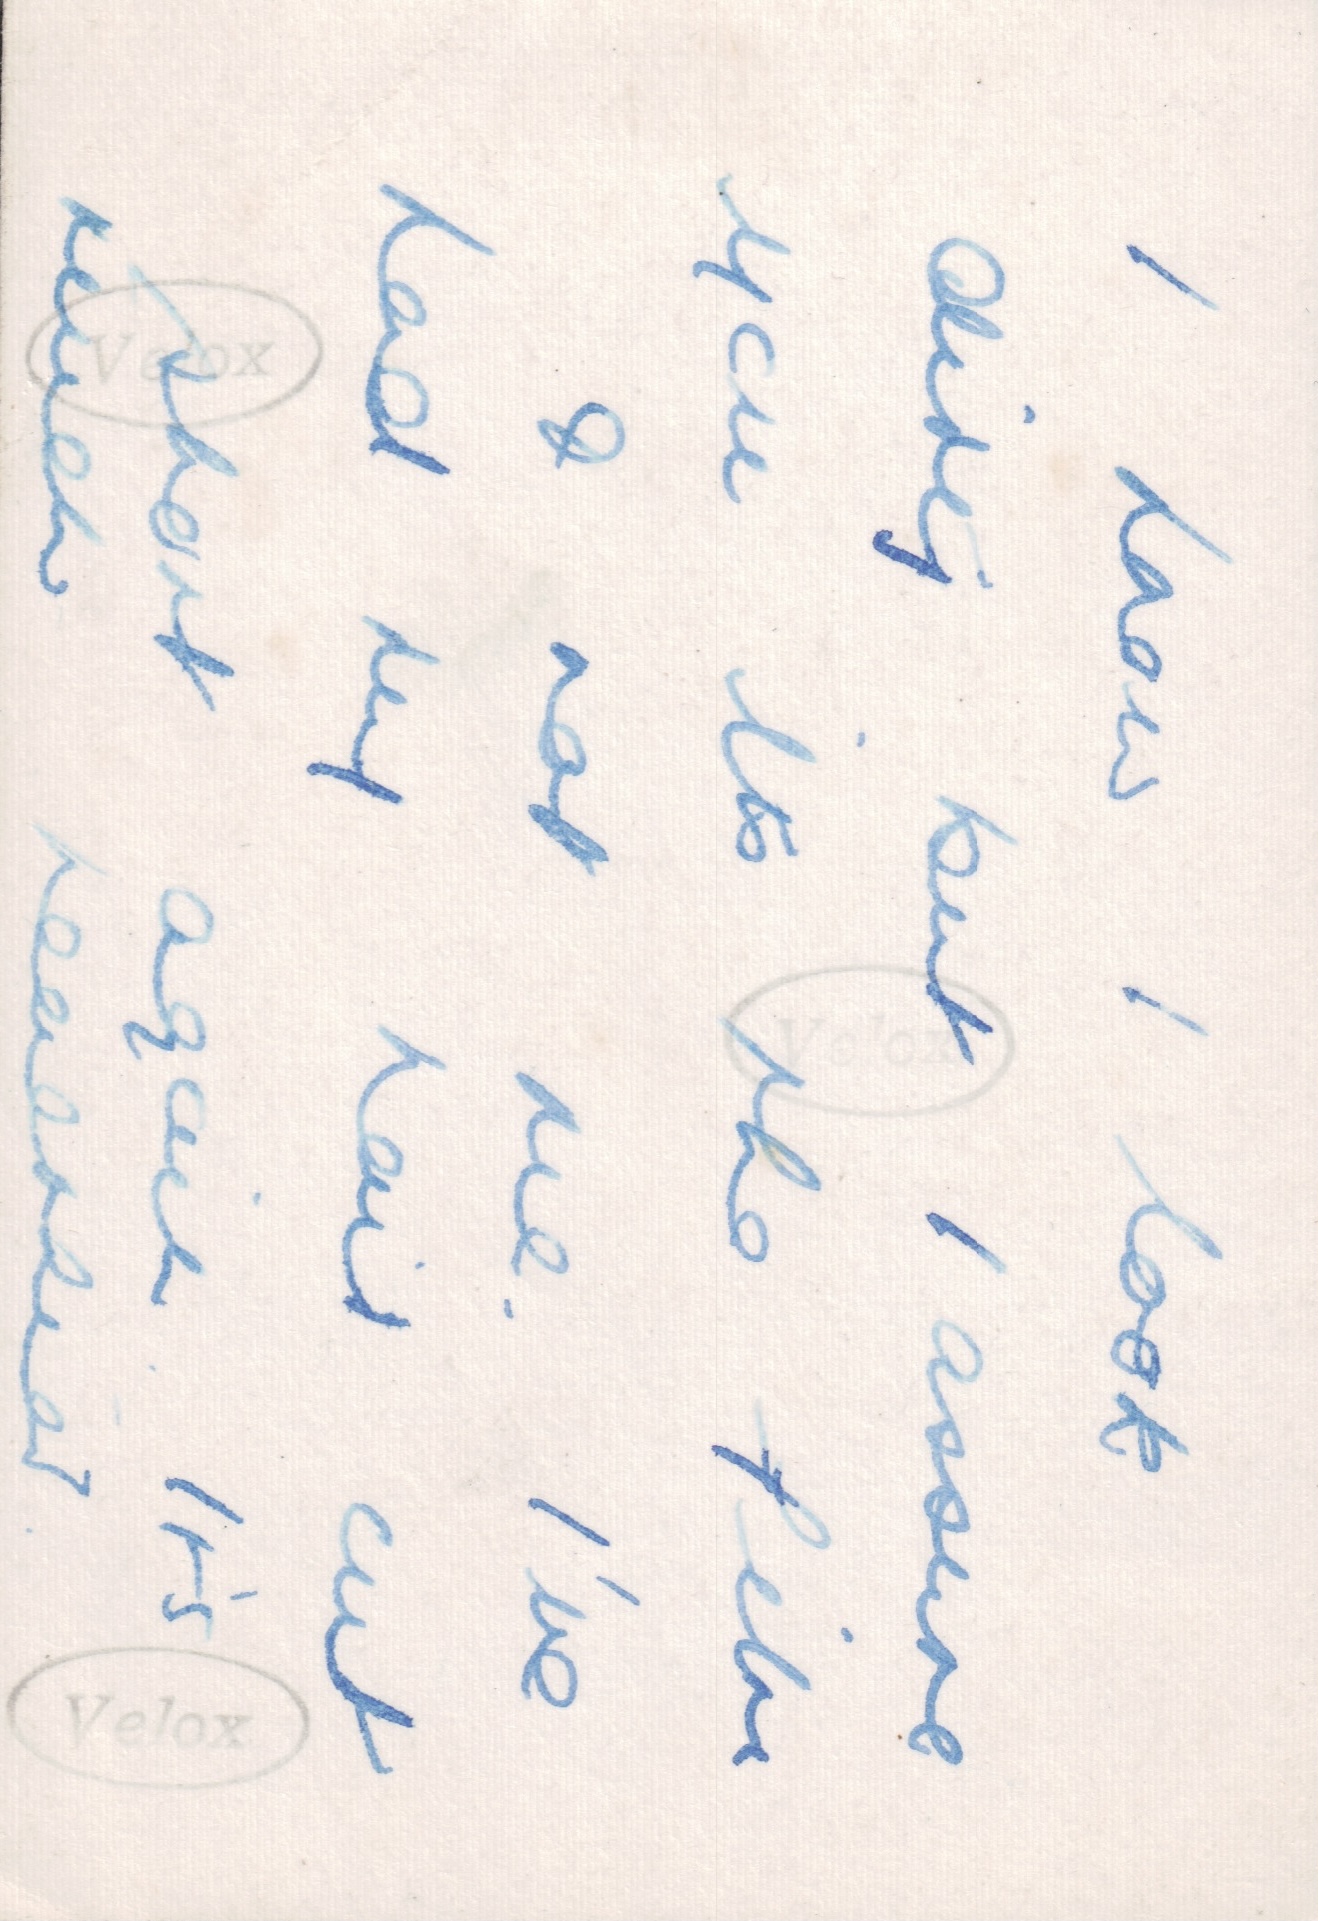 I know I look
dirty but I assure
you its the film
& not me. I've
had my hair cut
short again. It's
much
Velox
Velox
Velox